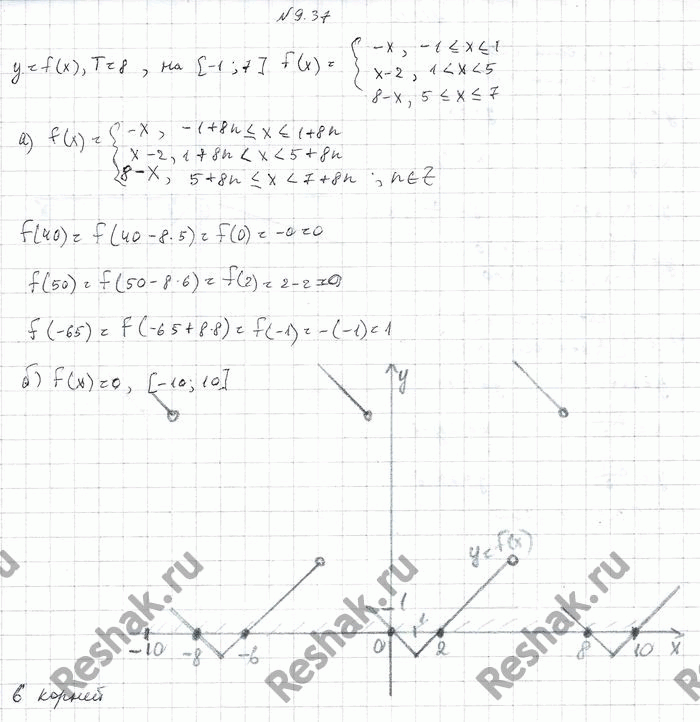 №9.37
y=f(x), T=8, на [-1;7] f(x)= { -x, -1≤x≤1
x-2, 1<x<5
8-x, 5≤x≤7
а) f(x)= { -x, -1+8n≤x≤1+8n
x-2, 1+8n<x<5+8n
8-x, 5+8n≤x<7+8n ; n∈Z
f(40)=f(40-8·5)=f(0)=-0=0
f(50)=f(50-8·6)=f(2)=2-2=0
f(-65)=f(-65+8·8)=f(-1)=-(-1)=1
б) f(x)=0, [-10;10]
y
y=f(x)
1
1
-10 -8 -6 0 2 8 10 x
6 корней
Reshak.ru
Reshak.ru
Reshak.ru